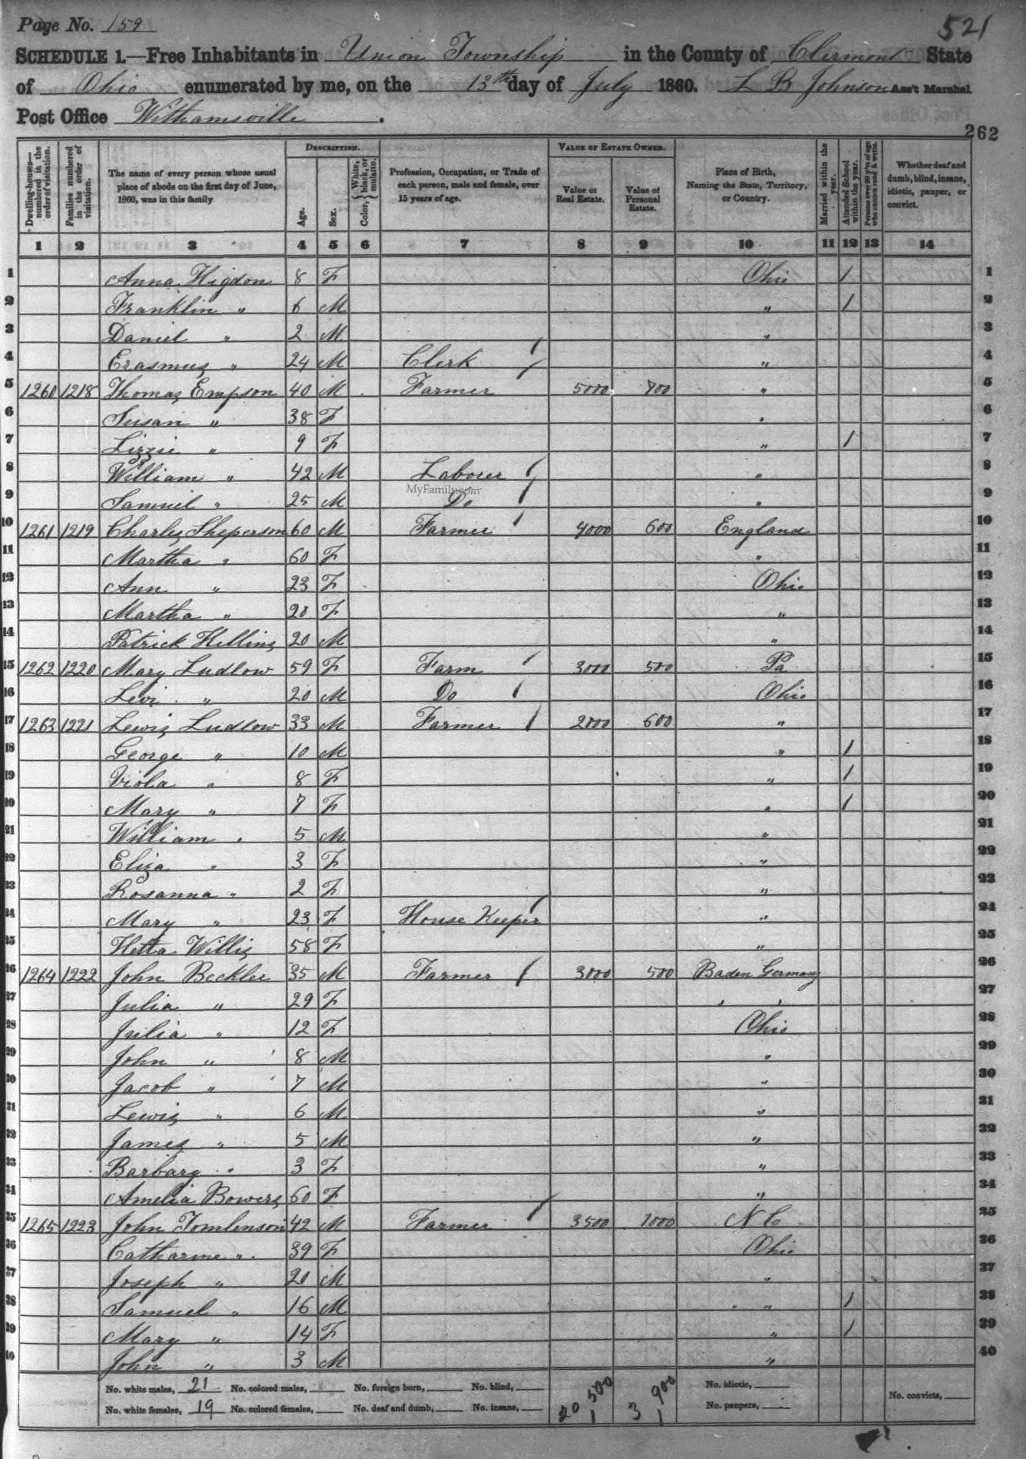 Page No. 159
521
SCHEDULE 1.—Free Inhabitants in Union Township in the County of Clermont State
of Ohio enumerated by me, on the 13th day of July 1860. L B Johnson Ass't Marshal
Post Office Withamsville.
262
Dwelling-houses—numbered in the order of visitation.
Families numbered in the order of visitation.
The name of every person whose usual place of abode on the first day of June, 1860, was in this family
DESCRIPTION.
Age.
Sex.
Color, White, black, or mulatto.
Profession, Occupation, or Trade of each person, male and female, over 15 years of age.
VALUE OF ESTATE OWNED.
Value of Real Estate.
Value of Personal Estate.
Place of Birth, Naming the State, Territory, or Country.
Married within the year.
Attended School within the year.
Whether deaf and dumb, blind, insane, idiotic, pauper, or convict.
1 2 3 4 5 6 7 8 9 10 11 12 13 14
1 Anna Higdon 8 F Ohio / 1
2 Franklin " 6 M " / 2
3 Daniel " 2 M " 3
4 Erasmus " 24 M Clerk " 4
5 1260 1218 Thomas Empson 40 M Farmer 5000 " 5
6 Susan " 38 F " 6
7 Lizzie " 9 F " / 7
8 William " 42 M Laborer " 8
9 Samuel " 25 M Do " 9
MyFamily.com
10 1261 1219 Charles Sheperson 60 M Farmer 4000 600 England 10
11 Martha " 60 F " 11
12 Ann " 23 F Ohio 12
13 Martha " 20 F " 13
14 Patrick 20 M " 14
15 1262 1220 Mary Ludlow 59 F Farm 3000 500 Pa 15
16 Levi " 20 M Do Ohio 16
17 1263 1221 Lewis Ludlow 33 M Farmer 2000 600 " 17
18 George " 10 M " / 18
19 Viola " 8 F " / 19
20 Mary " 7 F " / 20
21 William " 5 M " 21
22 Eliza " 3 F " 22
23 Rosanna " 2 F " 23
24 Mary " 23 F House Keeper " 24
25 Hetta Willis 58 F " 25
26 1264 1222 John Becklee 35 M Farmer 3000 500 Baden Germany 26
27 Julia " 29 F " " 27
28 Julia " 12 F Ohio 28
29 John " 8 M " 29
30 Jacob " 7 M " 30
31 Lewis " 6 M " 31
32 James " 5 M " 32
33 Barbary " 3 F " 33
34 Amelia Bowers 60 F " 34
35 1265 1223 John Tomlinson 42 M Farmer 3500 1000 N C 35
36 Catharine " 39 F Ohio 36
37 Joseph " 20 M " 37
38 Samuel " 16 M " / 38
39 Mary " 14 F " / 39
40 John " 3 M " 40
No. white males, 21 No. colored males, No. foreign born, No. blind, No. idiotic,
No. white females, 19 No. colored females, No. deaf and dumb, No. insane, 20 500 3 900 No. paupers, No. convicts,